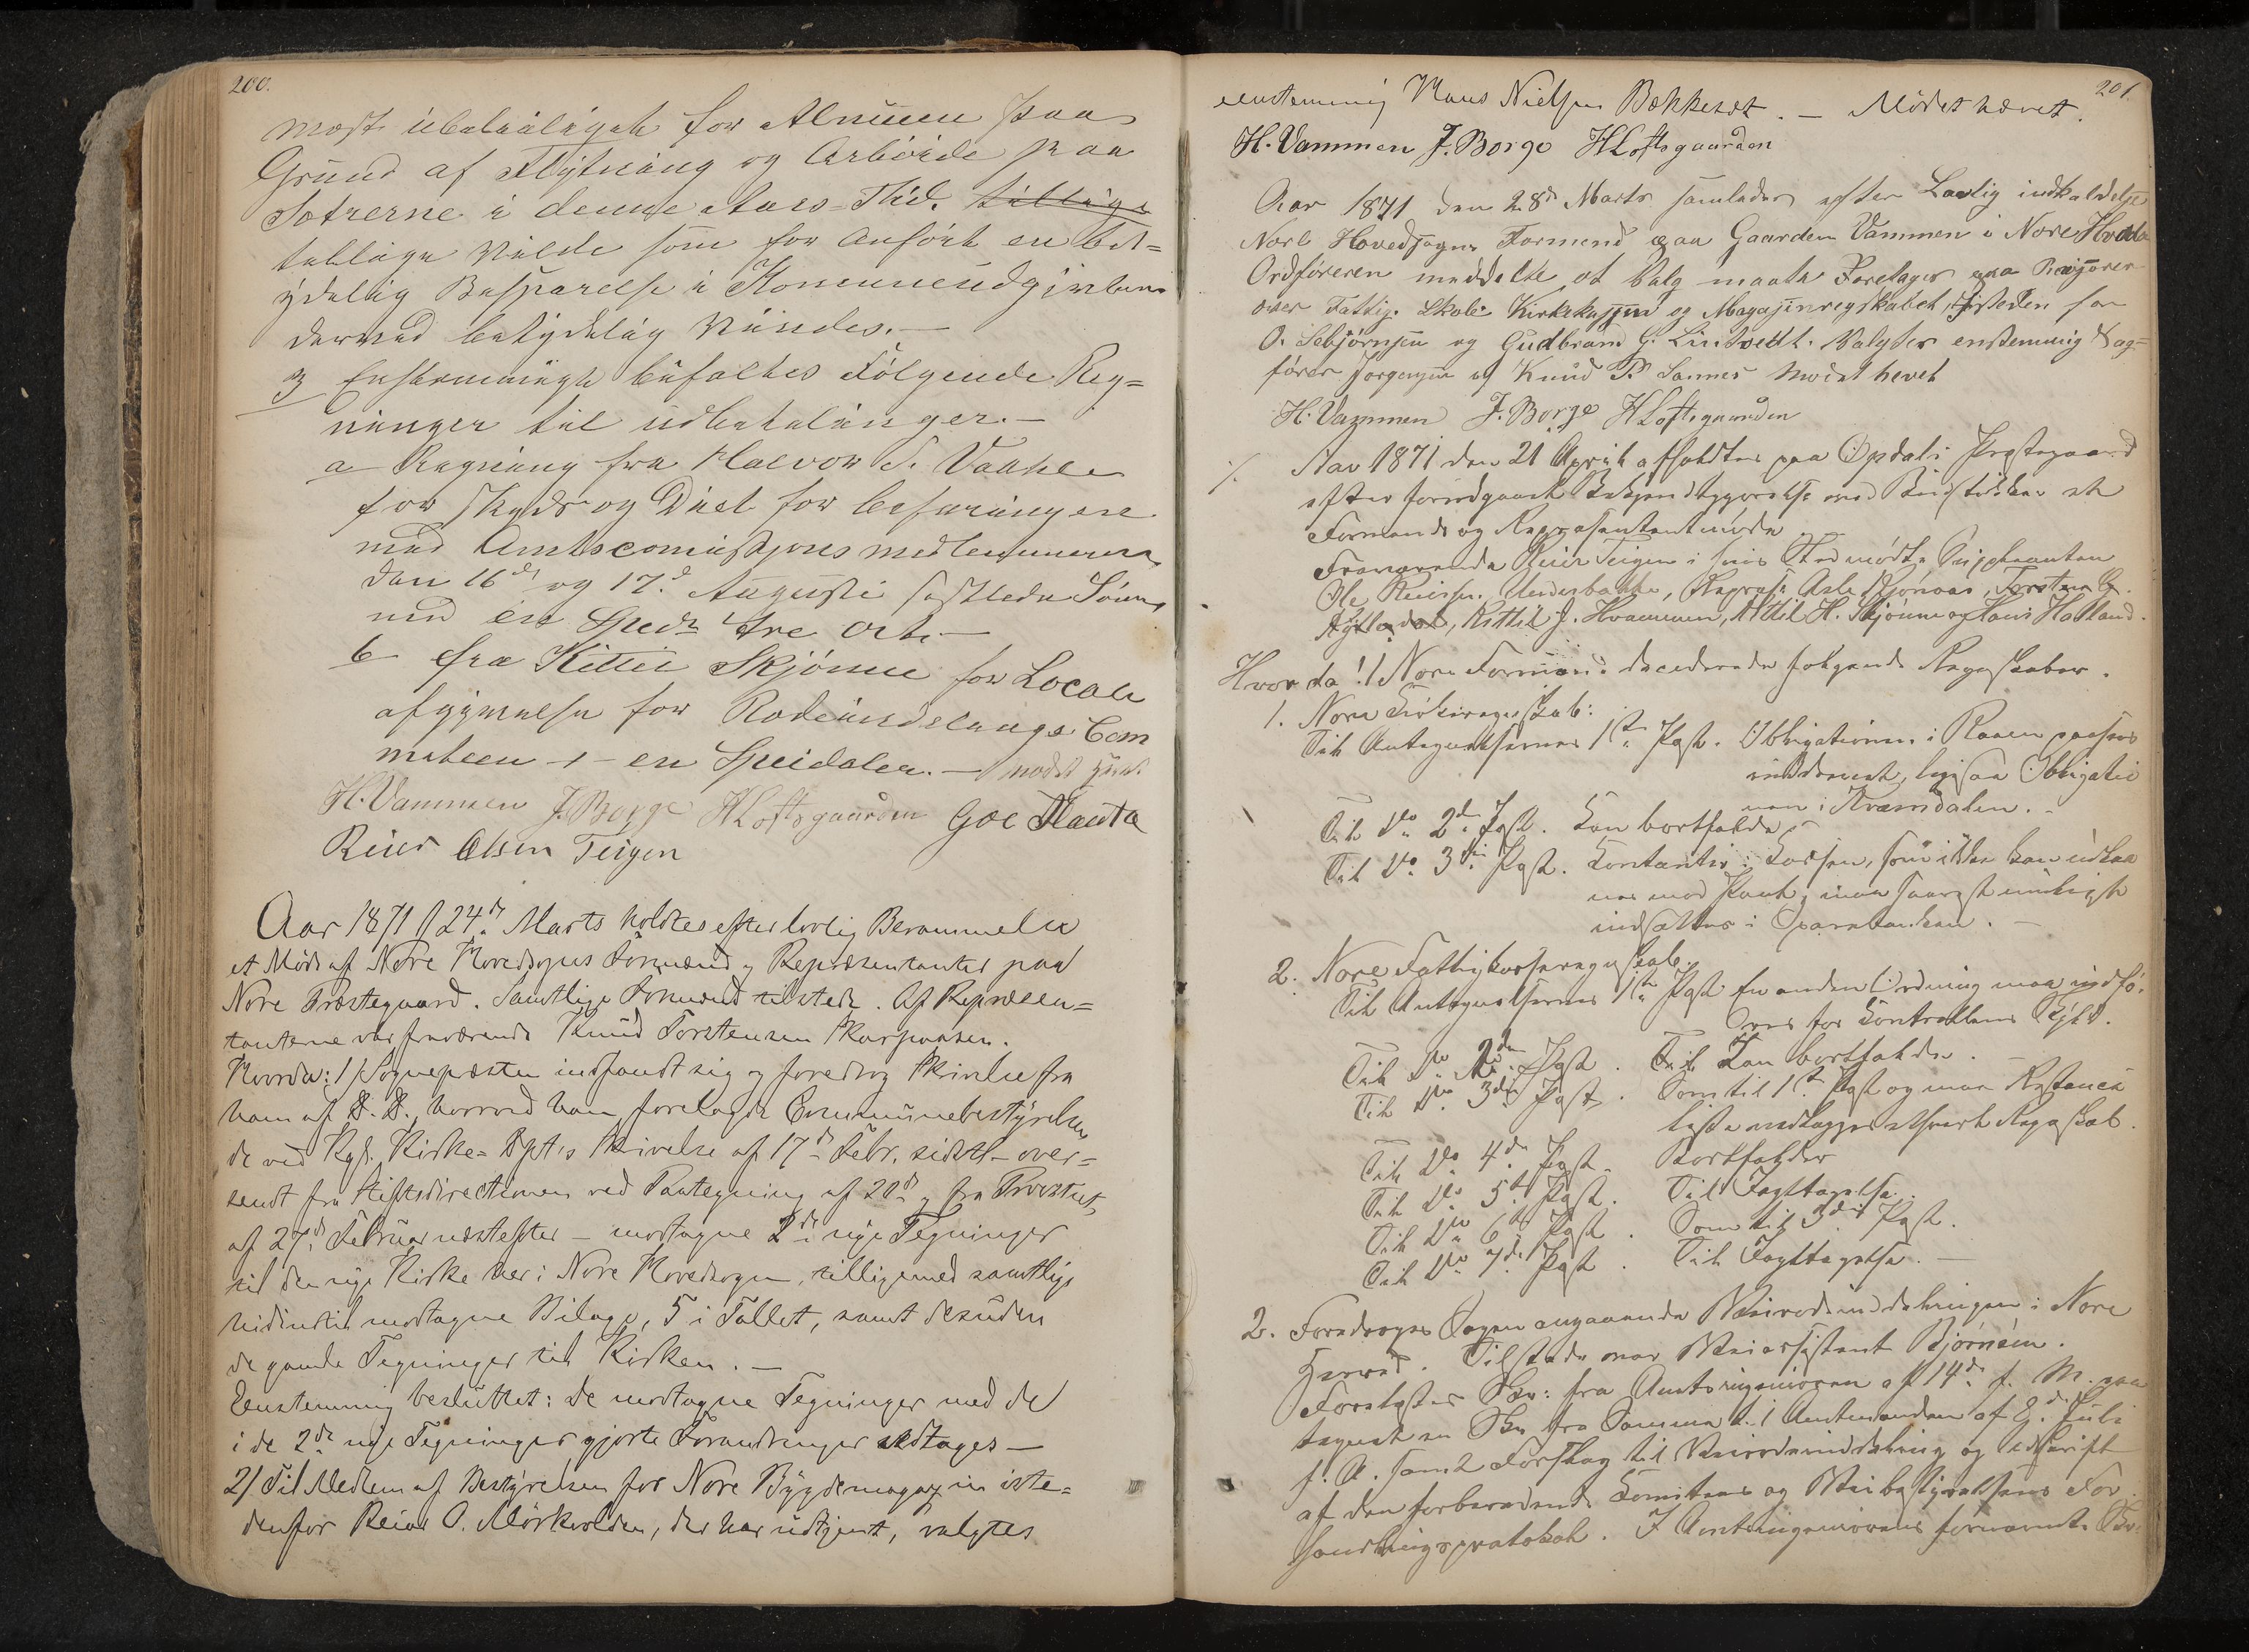 200.
mest ubeleiligste for Almuen paa
Grund af Flytning og Arbeide paa
Sætrerne i denne Aars-Tid. tillige
tillige vilde som for anført en bet=
ydelig Besparelse i Komuneudgivterne
dermed betydelig vindes.—
3 Enstemmigt bifaltes Følgende Reg=
ninger til udbetalinger.—
a Regning fra Halvor S. Vaahle
for skyds og Diet for befaringen
med Amtscomissjons medlemmerne
den 16de og 17d August sistleden Som
mer en Spedr tre ort.—
b fra Kittil Skjönne for Locale
afgivelse for Rodeinddelings Com
miteen -1- en Speidaler.— mødet hævet
H. Vammen J. Borge H Loftsgaarden Goe Flaata
Reier Olsen Teigen
Aar 1871 d 24de Marts holdtes efter lovlig Berammelse
et Møde af Nore Hovedsogns Formænd og Repræsentanter paa
Nore Præstegaard. Samtlige Formænd tilstede. Af Repræsen=
tanterne var fraværende Knud Torstensen Skarpaasen.
Hvorda: 1/ Sognepræsten indfandt sig og foredrog Skrivelse fra
ham af D. D., hvorved han forelagde Communebestyrelsen
de ved Kgl. Kirke-Dpt's Skrivelse af 17de Febr. sidstl. over=
sendt fra Stiftsdirectionen ved Paategning af 20de og fra Provstiet
af 27de Februar næstefter — modtagne 2de nye Tegninger
til den nye Kirke her i Nore Hovedsogn, tilligemed samtlige
hidindtil modtagne Bilage, 5 i Tallet, samt desuden
de gamle Tegninger til Kirken.—
Eenstemmig besluttet: de modtagne Tegninger med de
i de 2de nye Tegninger gjorte Forandringer vedtages—
2/ Til Medlem af Bestyrelsen for Nore Bygdemagazin iste=
denfor Reier O. Mörkvolden, der har udtjent, valgtes
201.
eenstemmig Hans Nielsen Bakkerdt.— Mødet hævet.
H. Vammen J. Borge H Loftsgaarden
Aar 1871 den 28de Marts samledes efter Lovlig indkaldelse
Nore Hovedsogns Formend paa Gaarden Vammen i Nore Hvorda
Ordföreren meddelte at Valg maatte Foretages paa Revisorer
over Fattig- Skole- Kirkekassen og Magasinregskabet, isteden for
O. Sebjörnsen og Gudbrand G. Lintvedt. Valgtes enstemmig Sag=
förer Jörgensen og Knud T. Sannes Mødet hevet
H. Vammen J. Borge H Loftsgaarden
Aar 1871 den 21 April afholdtes paa Opdals Prestegaard
efter foregaaende Bekjendtgjørelse ved Budstikker et
Formands og Repræsentantmøde
Fraværende Reier Teigen i hans Sted mødte Supleanten
Ole Reiersen Underbakke, Repræs. Asle Skjönnes, Torsten G.
, Kittil J. Hvammen, Kittil H. Skjönne og Hans Halland.
Hvorda! 1 Nore Formænd deciderede følgende Regnskaber.
1. Nore Kirkeregnskab:
Til Antegnelsernes 1ste Post. Obligationen i Raaen paasees
inddrevet, ligesaa Obligatio
nen i Kravmdalen.—
Til Do 2den Post. Kan bortfalde
Til Do 3die Post. Kontanter i Kassen, som ikke kan udlaa
nes mod Pant, maa snarest muligst
indsættes i Sparebanken.—
2. Nore Fattigkasseregnskab.
Til Antegnelsernes 1ste Post En anden Ordning maa indfö-
res for Kontrollens Skyld.
Til Do 2den Post. Kan bortfalde.
Til Do 3die Post. Som til 1ste Post og maa Restance
liste vedlægges ethvert Regnskab.
Til Do 4de Post. Bortfalder
Til Do 5te Post. Til Iagttagelse.
Til Do 6te Post. Som til 3die Post.
Til Do 7de Post. Til Iagttagelse.—
2. Foredroges Sagen angaaende Veirodeinddelingen i Nore
Herred. Tilstede var Veiassistent Bjørnsen.
Forelagdes Skr: fra Amtsingeniøren af 14de f. M. paa
tegnet en Skr fra Samme til Amtmanden af 8de Juli
f. A. samt Forslag til Veirodeinddeling og Udskrift
af den forberedende Komitees og Veibestyrelsens For
handlingsprotokol. I Amtsingeniørens fornævnte Skr: